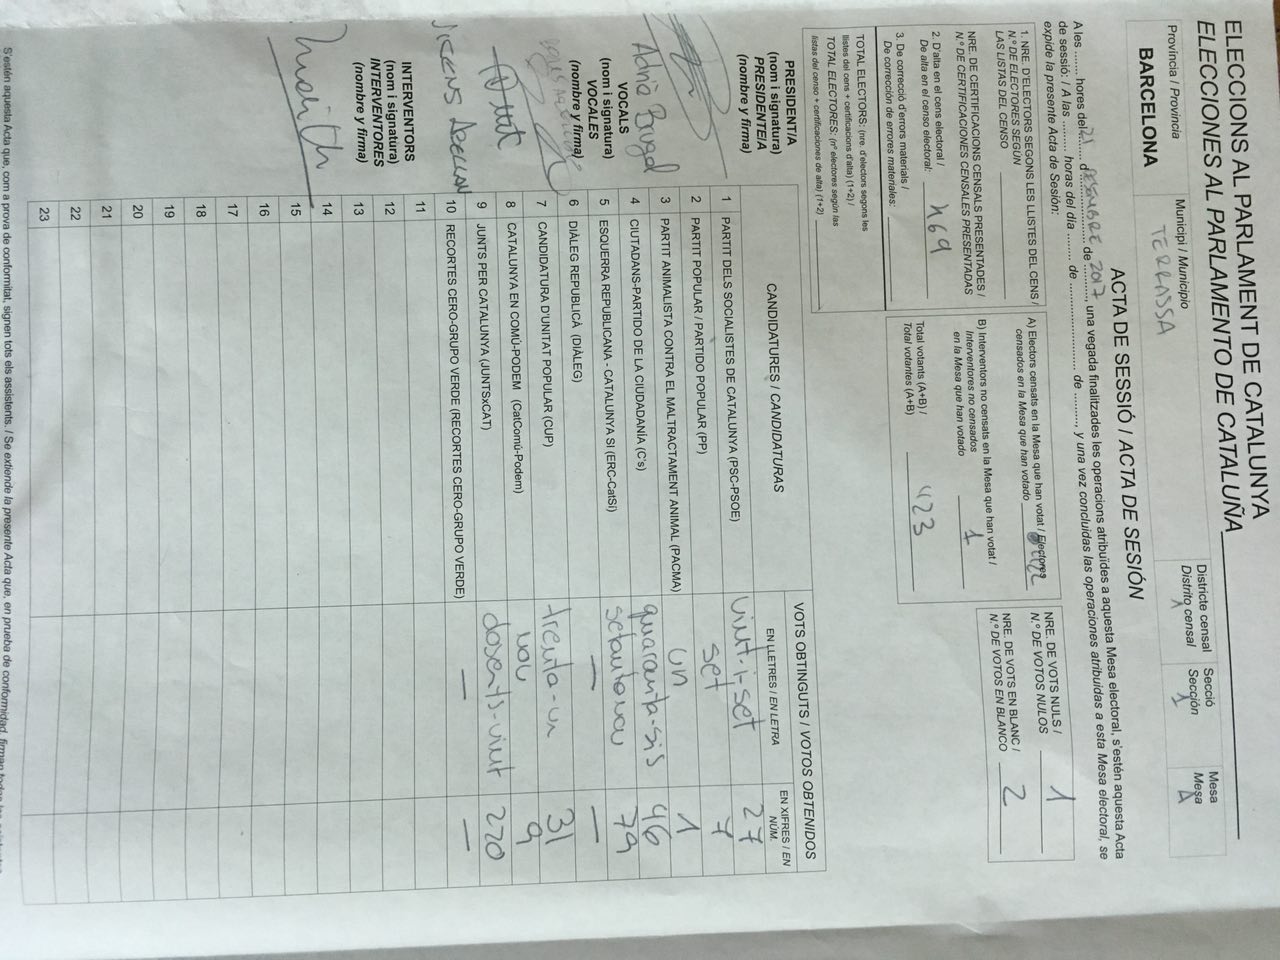 ELECCIONS AL PARLAMENT DE CATALUNYA
ELECCIONES AL PARLAMENTO DE CATALUÑA
Província / Provincia
BARCELONA
Municipi / Municipio
TERRASSA
Districte censal
Distrito censal
1
Secció
Sección
1
Mesa
Mesa
A
ACTA DE SESSIÓ / ACTA DE SESIÓN
A les ........ hores del 21 d DESEMBRE de 2017, una vegada finalitzades les operacions atribuïdes a aquesta Mesa electoral, s'estén aquesta Acta
de sessió: / A las ........ horas del día ........ de ........................ de ........, y una vez concluidas las operaciones atribuidas a esta Mesa electoral, se
expide la presente Acta de Sesión:
1. NRE. D'ELECTORS SEGONS LES LLISTES DEL CENS /
N.º DE ELECTORES SEGÚN
LAS LISTAS DEL CENSO
NRE. DE CERTIFICACIONS CENSALS PRESENTADES /
N.º DE CERTIFICACIONES CENSALES PRESENTADAS
2. D'alta en el cens electoral /
De alta en el censo electoral: 469
3. De correcció d'errors materials /
De corrección de errores materiales:
TOTAL ELECTORS: (nre. d'electors segons les
llistes del cens + certificacions d'alta) (1+2) /
TOTAL ELECTORES: (nº electores según las
listas del censo + certificaciones de alta) (1+2)
A) Electors censats en la Mesa que han votat / Electores
censados en la Mesa que han votado 422
B) Interventors no censats en la Mesa que han votat /
Interventores no censados
en la Mesa que han votado 1
Total votants (A+B) /
Total votantes (A+B) 423
NRE. DE VOTS NULS /
N.º DE VOTOS NULOS 1
NRE. DE VOTS EN BLANC /
N.º DE VOTOS EN BLANCO 2
PRESIDENT/A
(nom i signatura)
PRESIDENTE/A
(nombre y firma)
Adrià Brugal
VOCALS
(nom i signatura)
VOCALES
(nombre y firma)
INTERVENTORS
(nom i signatura)
INTERVENTORES
(nombre y firma)
CANDIDATURES / CANDIDATURAS
VOTS OBTINGUTS / VOTOS OBTENIDOS
EN LLETRES / EN LETRA
EN XIFRES / EN NÚM.
1 PARTIT DELS SOCIALISTES DE CATALUNYA (PSC-PSOE) vint-i-set 27
2 PARTIT POPULAR / PARTIDO POPULAR (PP) set 7
3 PARTIT ANIMALISTA CONTRA EL MALTRACTAMENT ANIMAL (PACMA) un 1
4 CIUTADANS-PARTIDO DE LA CIUDADANÍA (C's) quaranta-sis 46
5 ESQUERRA REPUBLICANA - CATALUNYA SÍ (ERC-CatSí) setanta nou 79
6 DIÀLEG REPUBLICÀ (DIÀLEG) — —
7 CANDIDATURA D'UNITAT POPULAR (CUP) trenta-un 31
8 CATALUNYA EN COMÚ-PODEM (CatComú-Podem) nou 9
9 JUNTS PER CATALUNYA (JUNTSxCAT) dosents-vint 220
10 RECORTES CERO-GRUPO VERDE (RECORTES CERO-GRUPO VERDE) — —
11
12
13
14
15
16
17
18
19
20
21
22
23
S'estén aquesta Acta que, com a prova de conformitat, signen tots els assistents. / Se extiende la presente Acta que, en prueba de conformidad, firman todos los